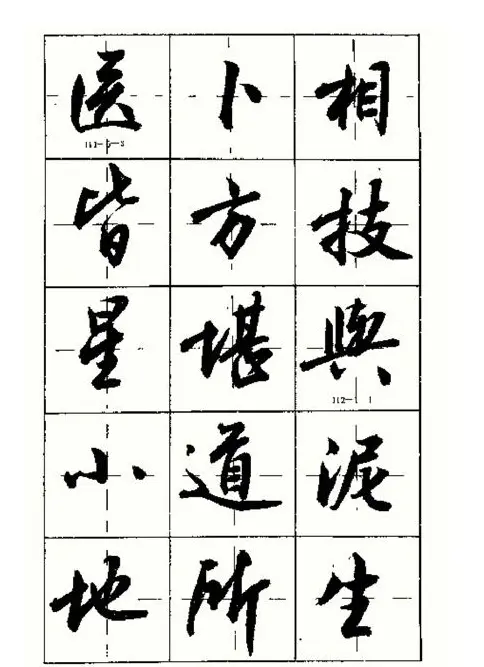 医卜相
皆方技
星堪舆
小道泥
地所生